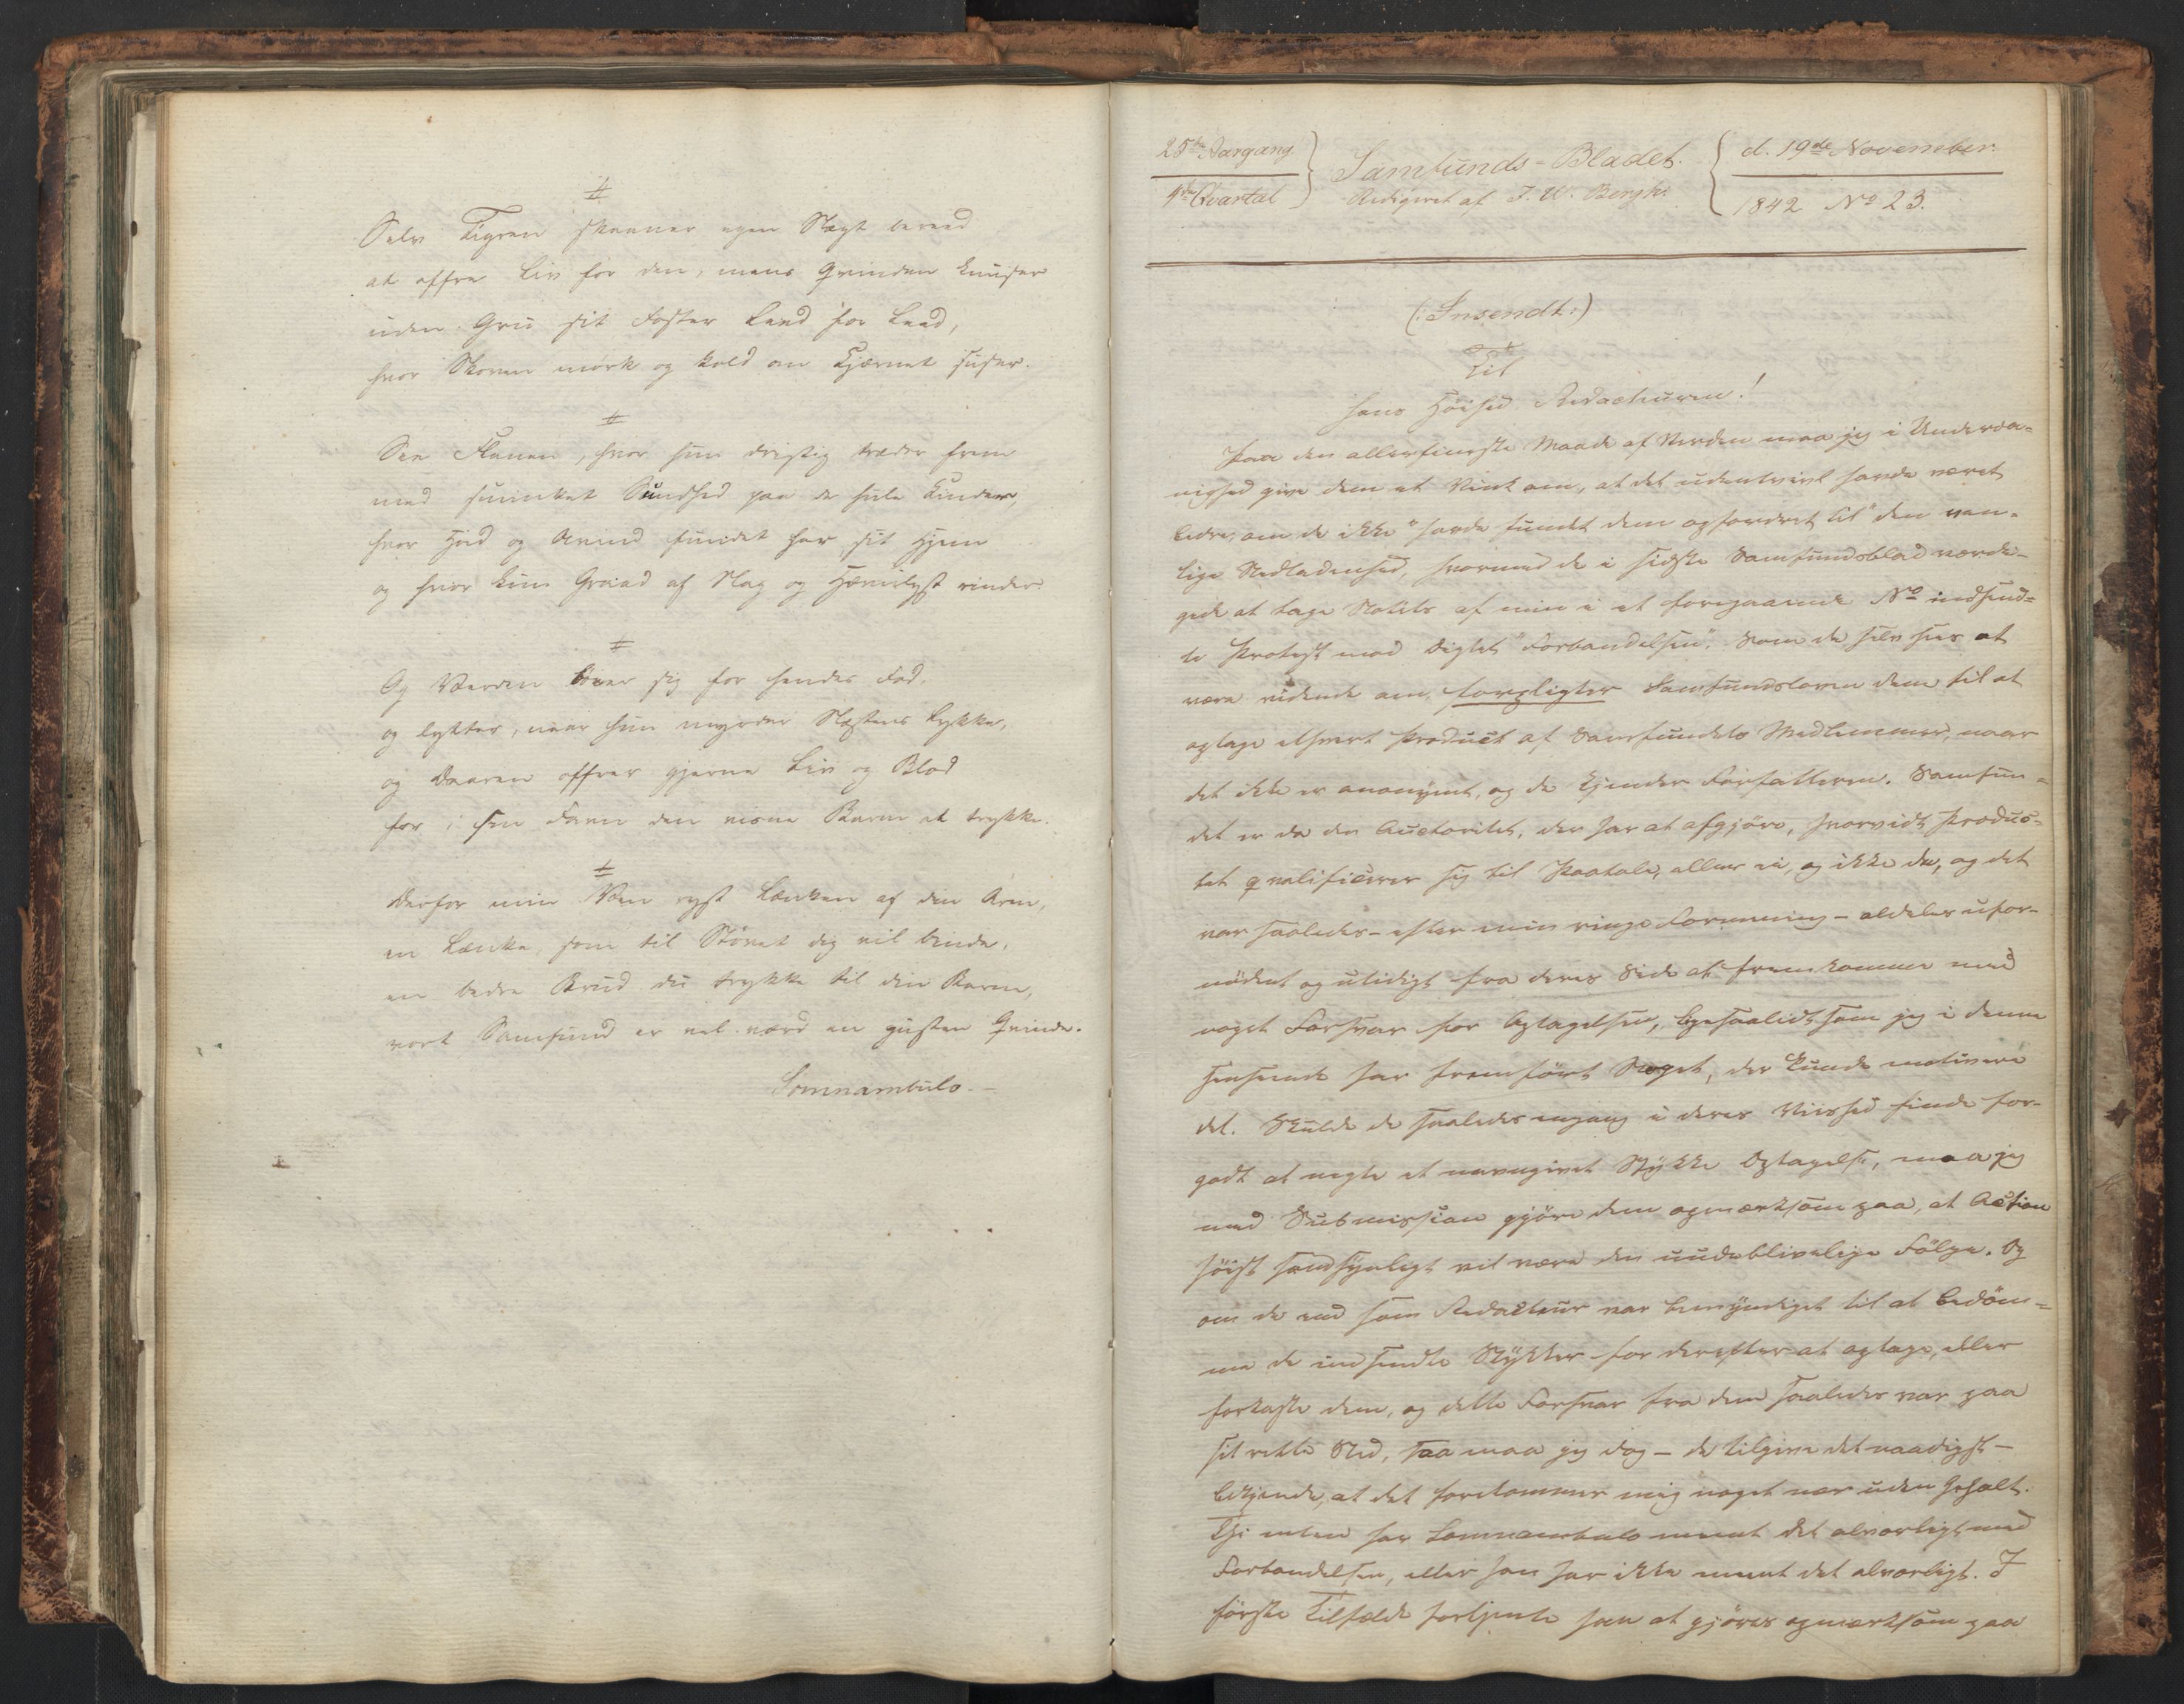 #
Selv Tigren skaaner egen Slægt bereed
at offre Liv for den, mens Qvinden knuser
uden Gru sit Foster Leed for Leed,
hvor Skoven mørk og kold om Tjærnet suser.
#
See Slanen, hvor hun dristig træder frem
med sminket Sundhed paa de hule Kinder,
hvor Had og Avind fundet har sit Hjem
og hvor kun Graad af Nag og Hævnlyst rinder.
#
Og Verden bøier sig for hendes Fod,
og lytter, naar hun myrder Næstens Lykke,
og Daaren offrer gjerne Liv og Blod
for i sin Favn den visne Barm at trykke.
#
Derfor min Ven ryst Lænken af din Arm,
en Lænke, som til Støvet dig vil binde,
en bedre Brud du trykke til din Barm,
vort Samfund er vel værd en gusten Qvinde.
Somnambulo.
25de Aargang
4de Qvartal
Samfunds-Bladet.
Redigeret af J. W. Bergh.
d. 19de November
1842 No 23.
(:Insendt:)
Til
Hans Høihed Redacteuren!
Paa den allerfineste Maade af Verden maa jeg i Underda=
nighed give dem et Vink om, at det udentvivl havde været
bedre, om de ikke "havde fundet dem opfordret til" den van-
lige Nedladenhed, hvormed de i sidste Samfundsblad værdi-
gede at tage Notits af min i et foregaaende No indsend=
te Protest mod Digtet "Forbandelsen". Som de selv sees at
være vidende om, forpligter Samfundsloven dem til at
optage ethvert Product af Samfundets Medlemmer, naar
det ikke er anonymt, og de kjender Forfatteren. Samfun=
det er da den Auctoritet, der har at afgjöre, hvorvidt Produc=
tet qvalificerer sig til Paatale, eller ei, og ikke de, og det
var saaledes - efter min ringe Formening - aldeles ufor-
nödent og utidigt fra deres Side at fremkomme med
noget Forsvar for Optagelsen, ligesaalidt som jeg i denne
Henseende har fremfört Noget, der kunde motivere
det. Skulde de saaledes engang i deres Viished finde for-
godt at negte et navngivet Stykke Optagelse, maa jeg
med Submission gjöre dem opmærksom paa, at Action
höist sandsynligt vil være den uudeblivelige Fölge. Og
om de end som Redacteur var bemyndiget til at bedöm=
me de indsendte Stykker for derefter at optage, eller
forkaste dem, og dette Forsvar fra dem saaledes var paa
sit rette Sted, saa maa jeg dog - de tilgive det naadigst -
bekjende, at det forekommer mig noget nær uden Gehalt.
Thi enten har Somnambulo meent det alvorligt med
Forbandelsen, eller han har ikke meent det alvorligt. I
förste Tilfælde fortjente han at gjöres opmærksom paa